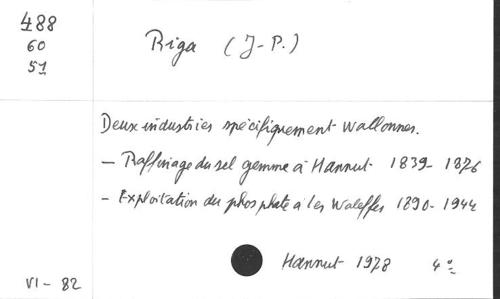 488
60
51
Riga (J-P.)
Deux industries spécifiquement wallonnes.
- Raffinage du sel gemme à Hannut 1839-1876
- Exploitation du phosphate à les Waleffes 1890-1944
Hannut 1978 4°
VI-82